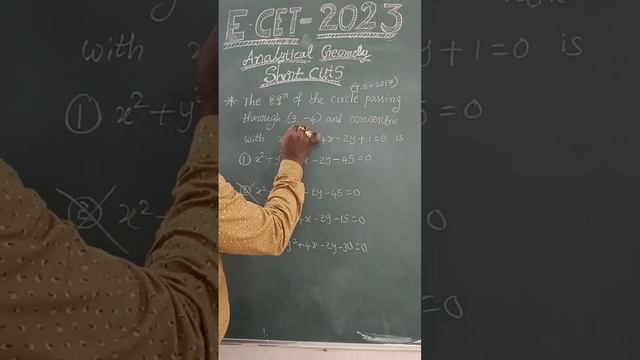 E-CET-2023
Analytical Geometry
Short Cuts
(T.S-2017)
* The Eqn of the circle passing
through (3, -4) and concentric
with 4x-2y+1=0 is
① x²+y -2y-45=0
② x² -2y-45=0
x-2y-15=0
y²+4x-2y-30=0
with y+1=0 is
① x²+y 5=0
② x²- =0